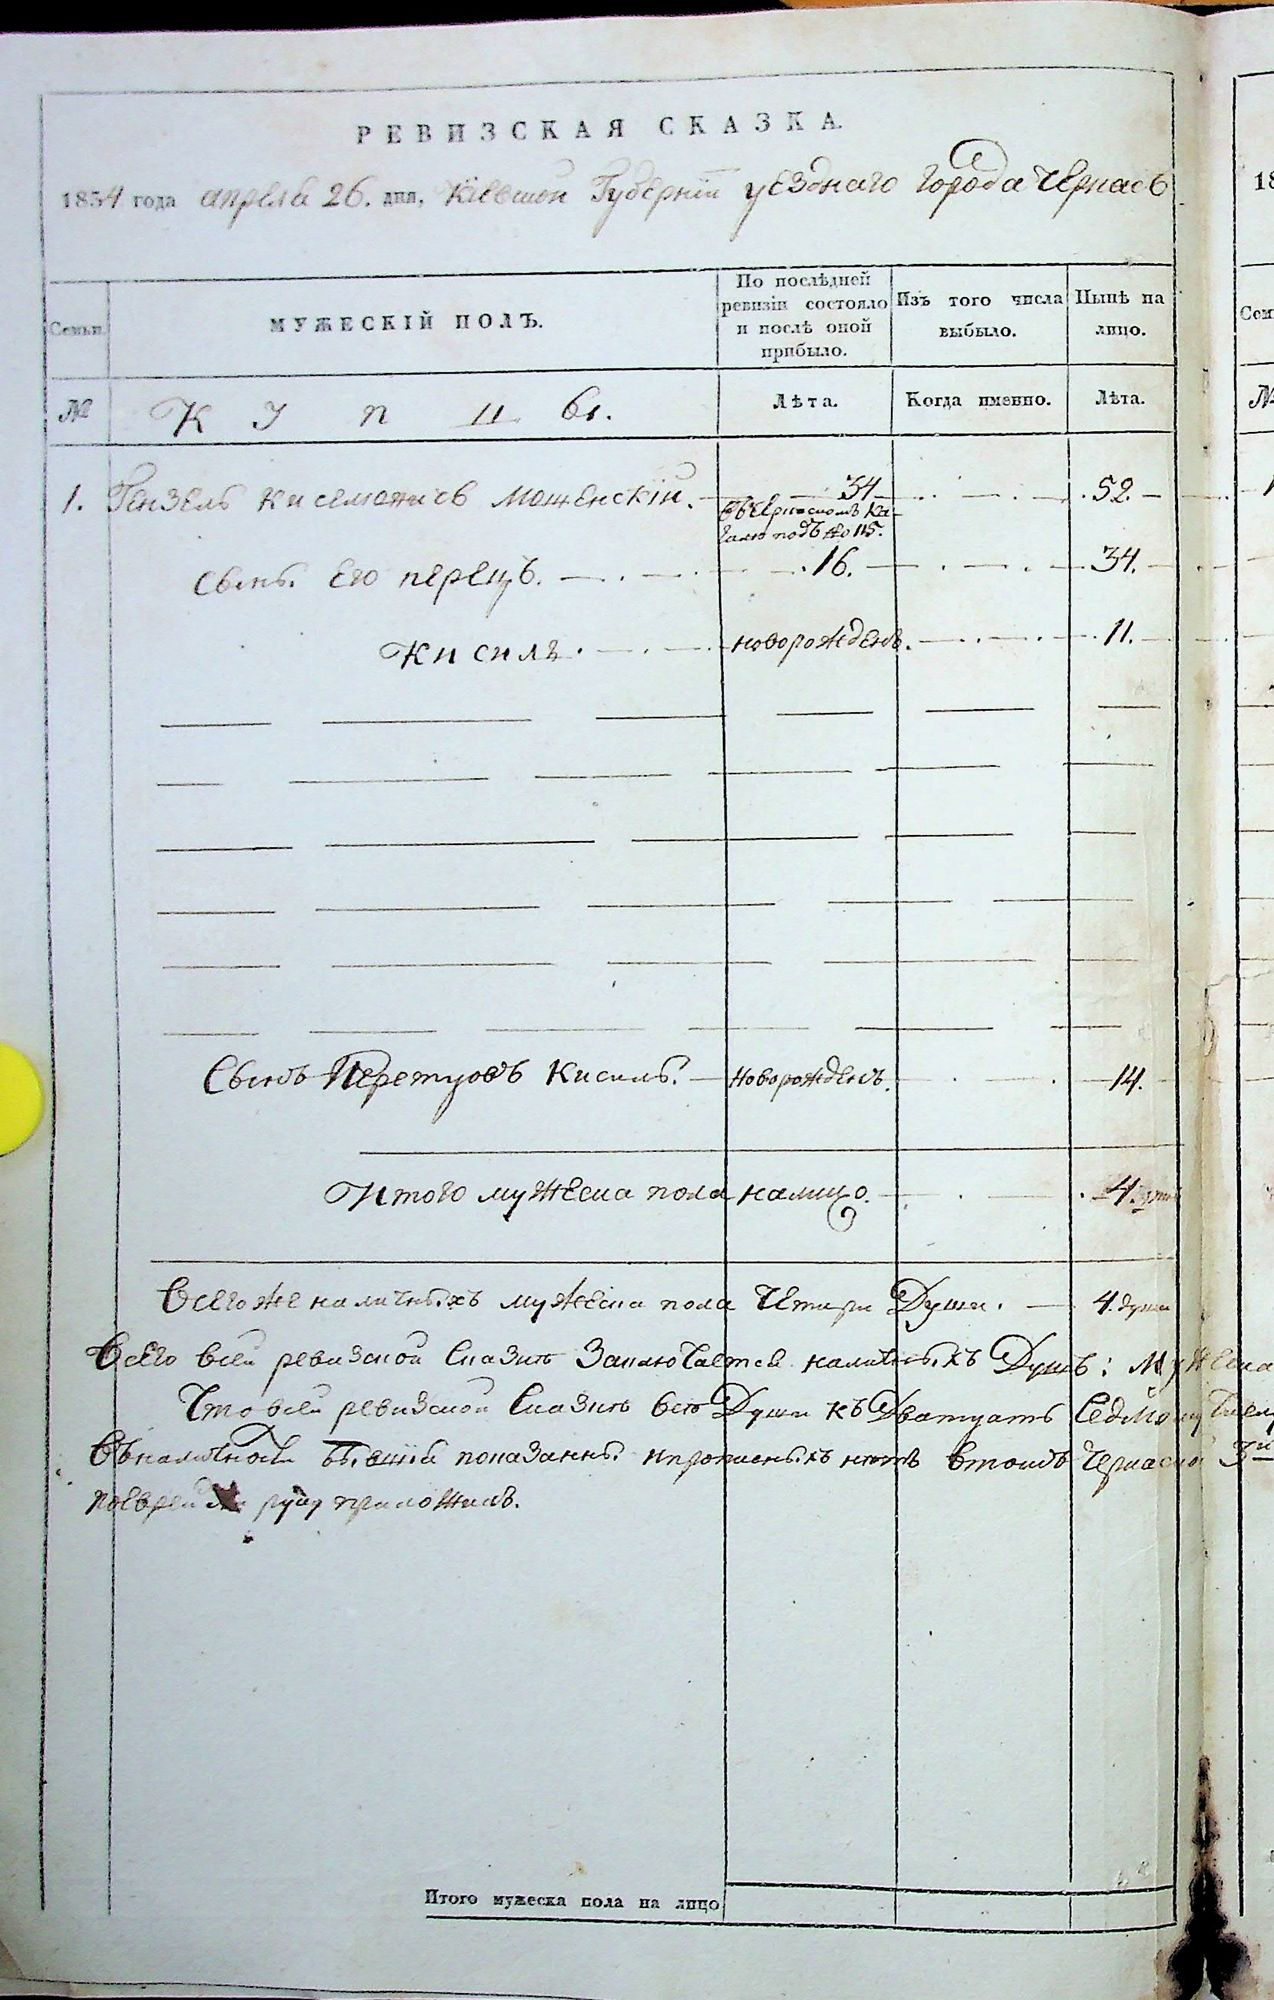 РЕВИЗСКАЯ СКАЗКА.
1854 года апреля 26. дня, Кіевской Губерніи уезднаго города Черкасъ
Семьи.
МУЖЕСКІЙ ПОЛЪ.
По послѣдней ревизіи состояло и послѣ оной прибыло.
Изъ того числа выбыло.
Нынѣ на лицо.
№
К у п ц ы.
Лѣта.
Когда именно.
Лѣта.
1. Кисемовичъ Мошенскій. 34 52.
въ Черкаскомъ Ка-
галѣ подъ № 115.
Сынъ Его перецъ. 16. 34.
Кисиль. новорожденъ. 11.
Сынъ Перетцовъ Кисиль. Новорожденъ. 14.
Итого мужеска пола налицо. 4. души
Всего же наличныхъ мужеска пола Четыри Души. 4. души
Всего всей ревизской Сказкѣ Заключается наличныхъ Душъ: Мужеска
Что всей ревизской Сказкѣ всѣ Души къ Двадцать Седмому
Въ наличности бывшіи показаны и прописныхъ нѣтъ втомъ Черкаской 3й
руку приложилъ.
Итого мужеска пола на лицо